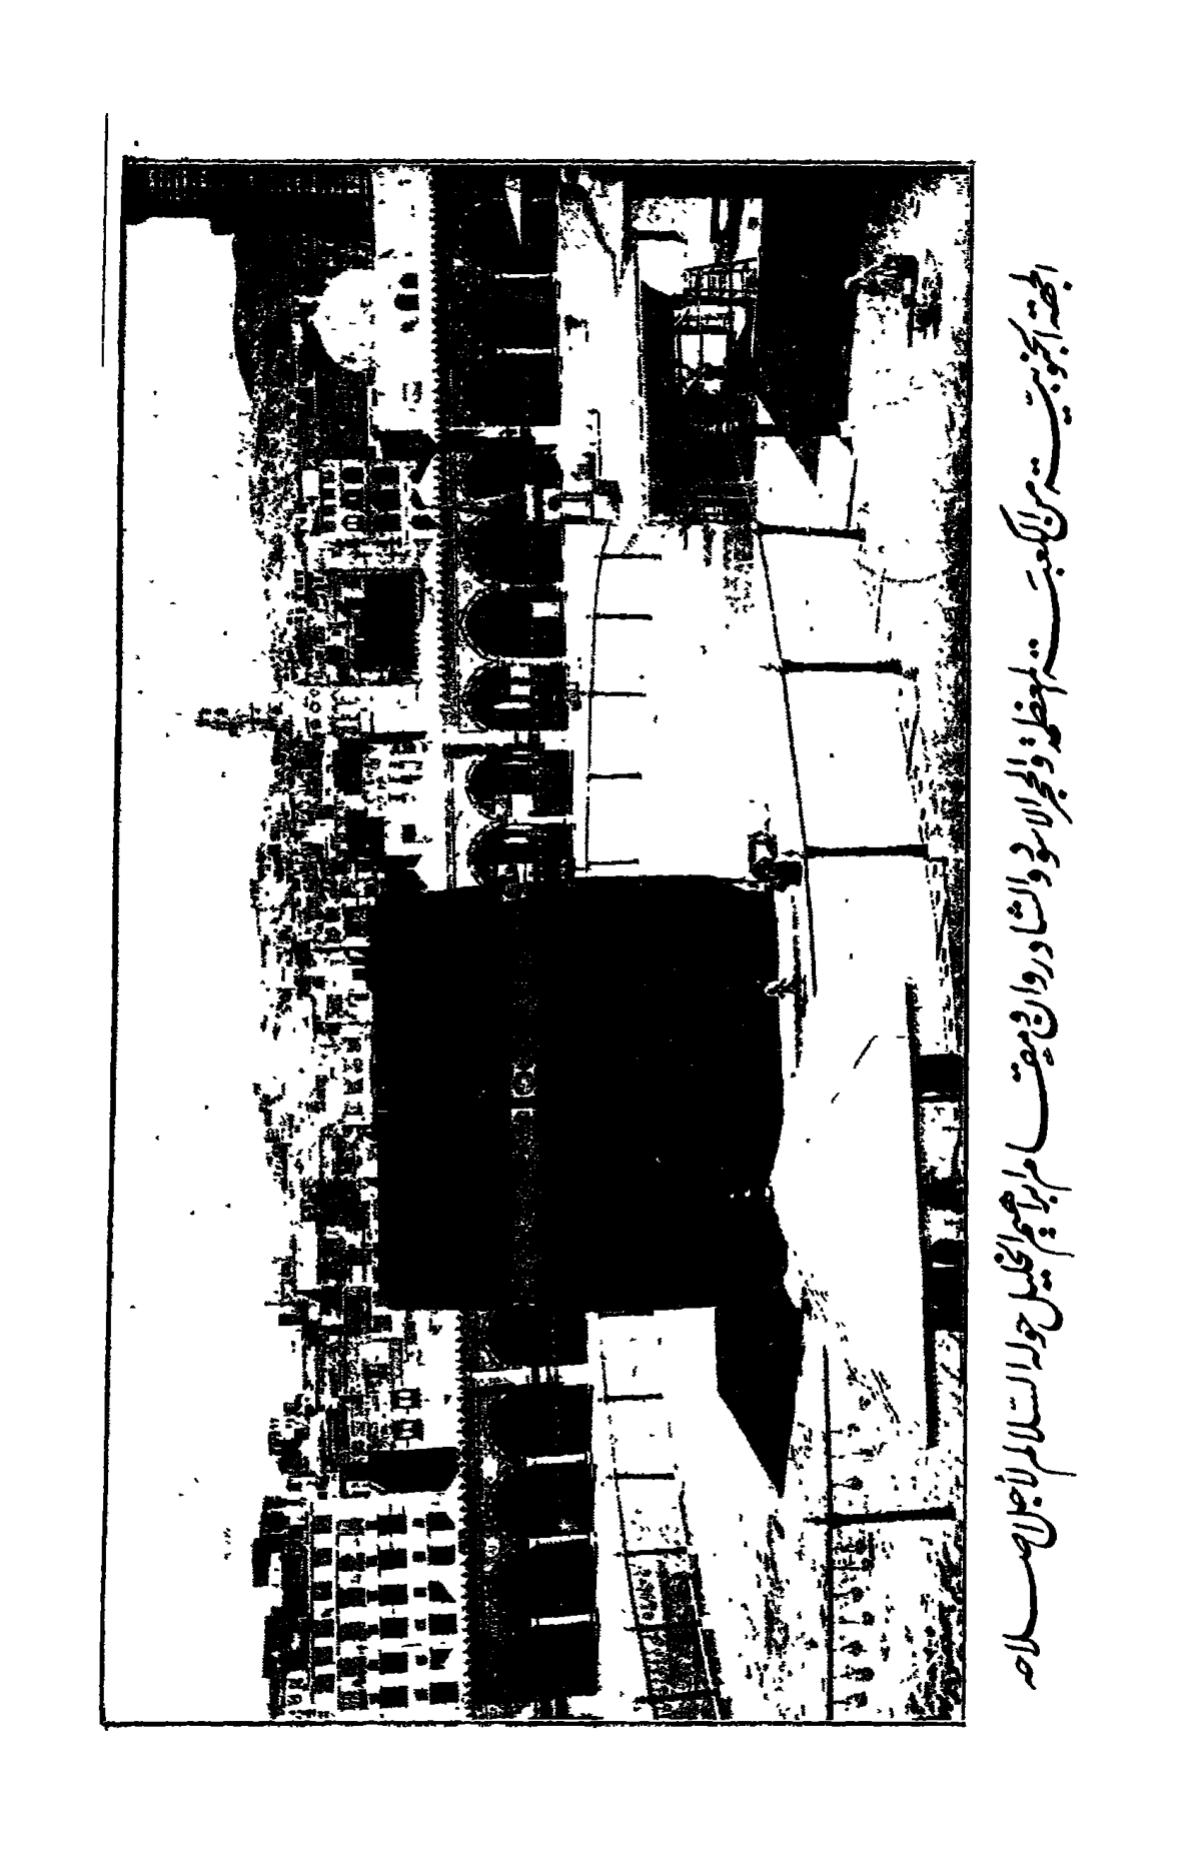 الجهة الجنوبية من الكعبة المعظمة والحجر الاسود والشاذروان ومقام ابراهيم الخليل حوله السلالم لأجل اصلاحه